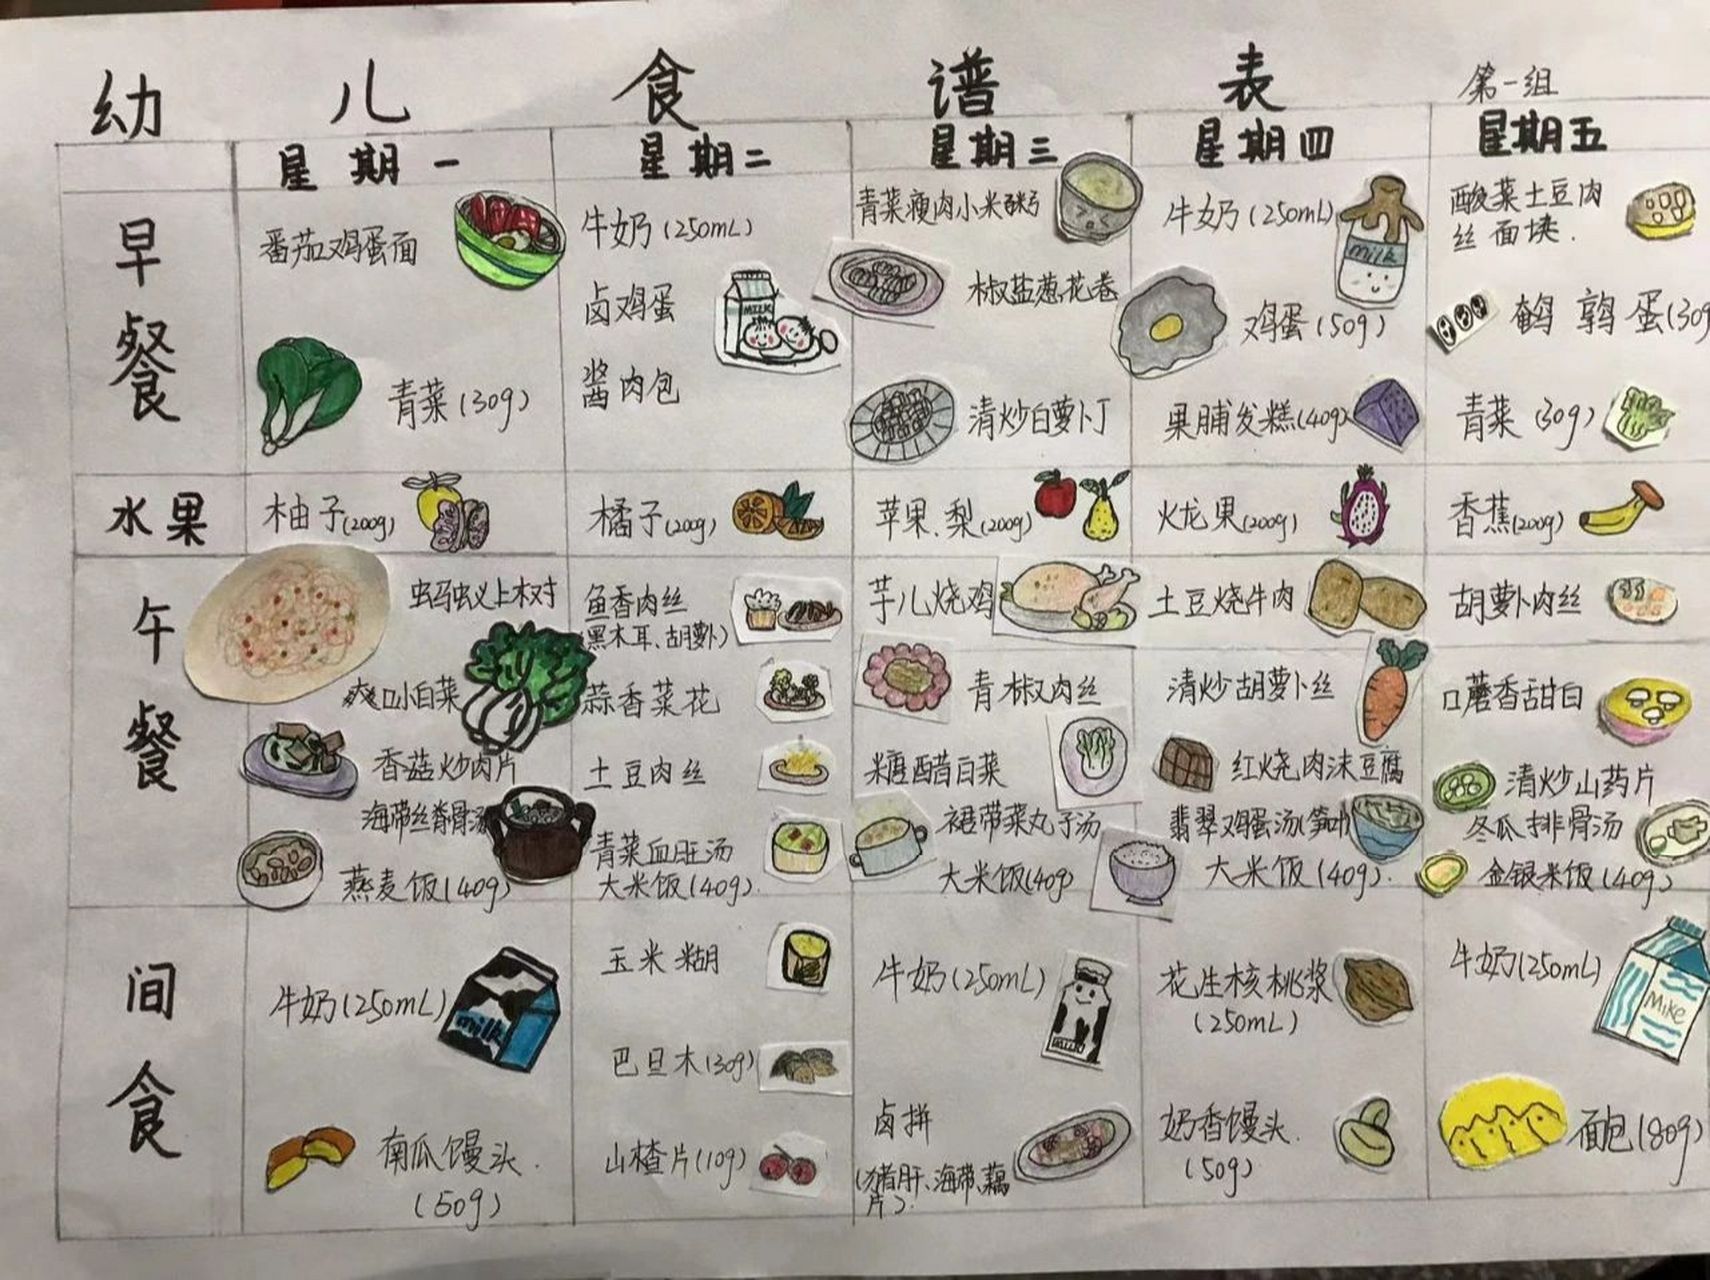 幼儿食谱表
第一组
星期一
星期二
星期三
星期四
星期五
早餐
番茄鸡蛋面
青菜(30g)
牛奶(250mL)
卤鸡蛋
酱肉包
MILK
青菜瘦肉小米粥
椒盐葱花卷
清炒白萝卜丁
牛奶(250mL)
milk
鸡蛋(50g)
果脯发糕(40g)
酸菜土豆肉
丝面块.
鹌鹑蛋(30g
青菜(30g)
水果
柚子(200g)
橘子(200g)
苹果.梨(200g)
火龙果(200g)
香蕉(200g)
午餐
蚂蚁上树
小白菜
香菇炒肉片
海带丝脊骨汤
燕麦饭(40g)
鱼香肉丝
(黑木耳、胡萝卜)
蒜香菜花
土豆肉丝
青菜血旺汤
大米饭(40g).
芋儿烧鸡
青椒肉丝
糖醋白菜
裙带菜丸子汤
大米饭(40g)
土豆烧牛肉
清炒胡萝卜丝
红烧肉沫豆腐
翡翠鸡蛋汤
大米饭(40g).
胡萝卜肉丝
口蘑香甜白
清炒山药片
冬瓜排骨汤
金银米饭(40g)
间食
牛奶(250mL)
milk
南瓜馒头.
(50g)
玉米糊
巴旦木(30g)
山楂片(10g)
牛奶(250mL)
卤拼
(猪肝、海带、藕
片).
花生核桃浆
(250mL)
奶香馒头.
(50g)
牛奶(250mL)
Mike
面包(80g)